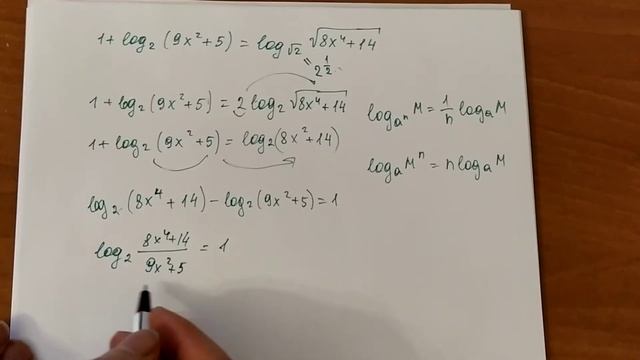 1 + log₂ (9x² + 5) = log_√2 √(8x⁴ + 14)
= 2^(1/2)
1 + log₂ (9x² + 5) = 2 log₂ √(8x⁴ + 14)
log_aⁿ M = 1/n log_a M
1 + log₂ (9x² + 5) = log₂ (8x² + 14)
log_a Mⁿ = n log_a M
log₂ (8x⁴ + 14) - log₂ (9x² + 5) = 1
log₂ (8x⁴ + 14)/(9x² + 5) = 1